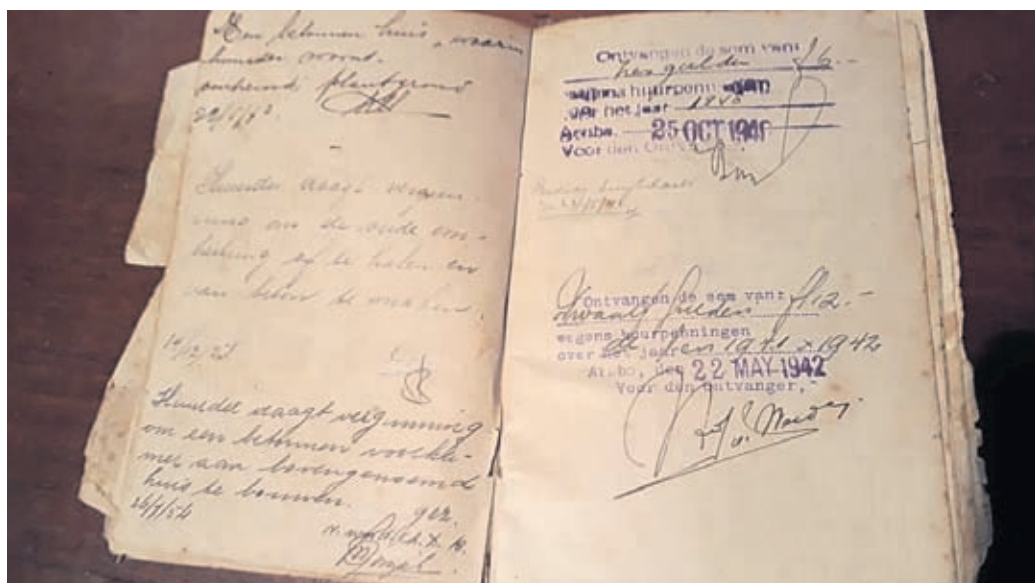 Een betonnen huis, waarin
huurder woont.
omheind plantgrond
Huurder vraagt vergun-
ning om de oude om-
heining af te halen en
van beton de maken.
Huurder vraagt vergunning
om een betonnen voorka-
mer aan bovengenoemd
huis te bouwen.
26/1/54
gez.
Ontvangen de som van:
zes gulden f6.-
wegens huurpenningen
over het jaar 1940
Aruba. 25 OCT 1940
Voor den Ontvanger,
Ontvangen de som van:
Twaalf gulden f12.-
wegens huurpenningen
over het jaar de jaren 1941 + 1942
Aruba, den 22 MAY 1942
Voor den ontvanger,